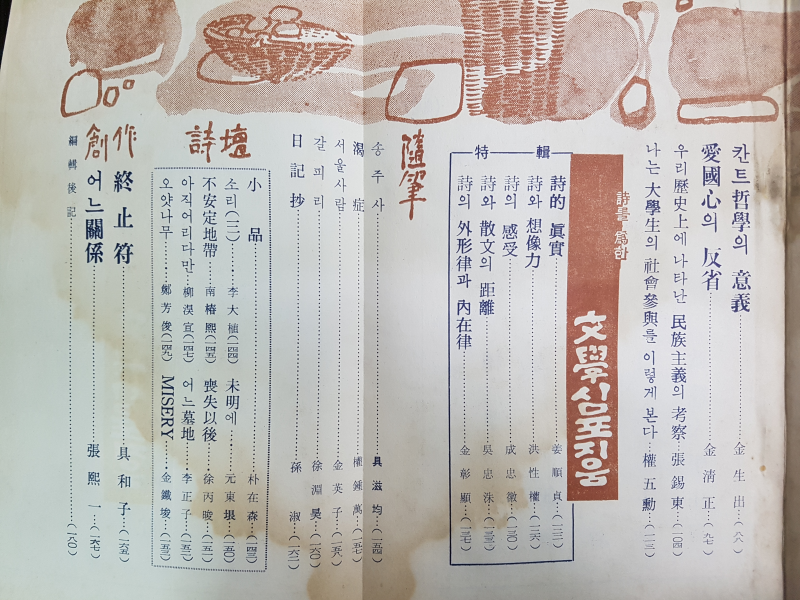 칸트哲學의 意義 金生出 (八八)
愛國心의 反省 金淸正 (九七)
우리 歷史上에 나타난 民族主義의 考察 張錫東 (一〇四)
나는 大學生의 社會參與를 이렇게 본다 權五勳 (一一三)
詩를 爲한
文學심포지움
特輯
詩的 眞實 姜順貞 (一二二)
詩와 想像力 洪性權 (一二六)
詩의 感受 成忠徽 (一三〇)
詩와 散文의 距離 吳忠洙 (一三三)
詩의 外形律과 內在律 金彰顯 (一三七)
隨筆
송주사 具滋均 (一五四)
渴症 權鍾萬 (一五七)
서울사람 金英子 (一五八)
갈피리 徐淵昊 (一六〇)
日記抄 孫淑 (一六二)
詩壇
小品 朴在森 (一四三)
소리(三) 李大植 (一四四)
未明에 元東垠 (一五〇)
不安定地帶 南椿熙 (一四五)
喪失以後 徐丙晙 (一五一)
아직어리다만 柳渼宣 (一四七)
어느 墓地 李正子 (一五二)
오얏나무 鄭芳俊 (一四九)
MISERY 金鐵埈 (一五三)
創作
終止符 具和子 (一六五)
어느 關係 張熙一 (一六七)
編輯後記 (一八〇)